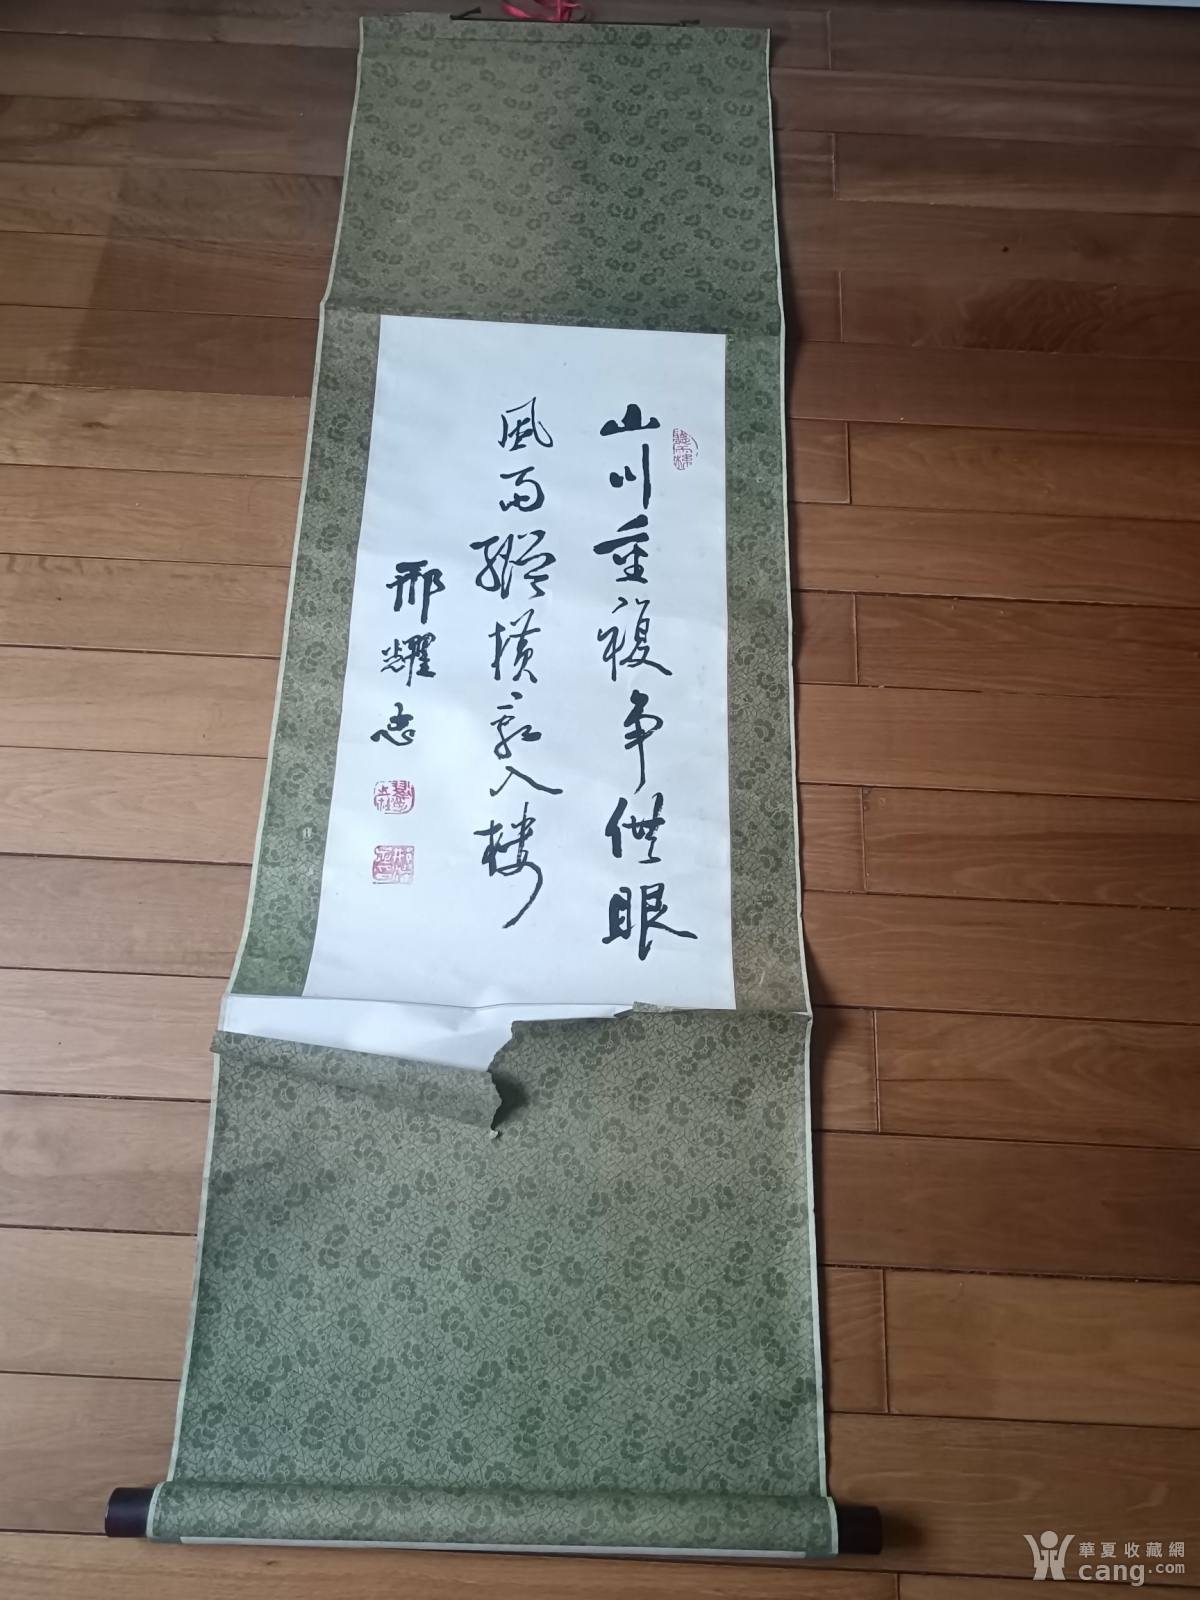 山川重複争供眼
風雨縱橫亂入樓
邢耀忠
華夏收藏網
cang.com